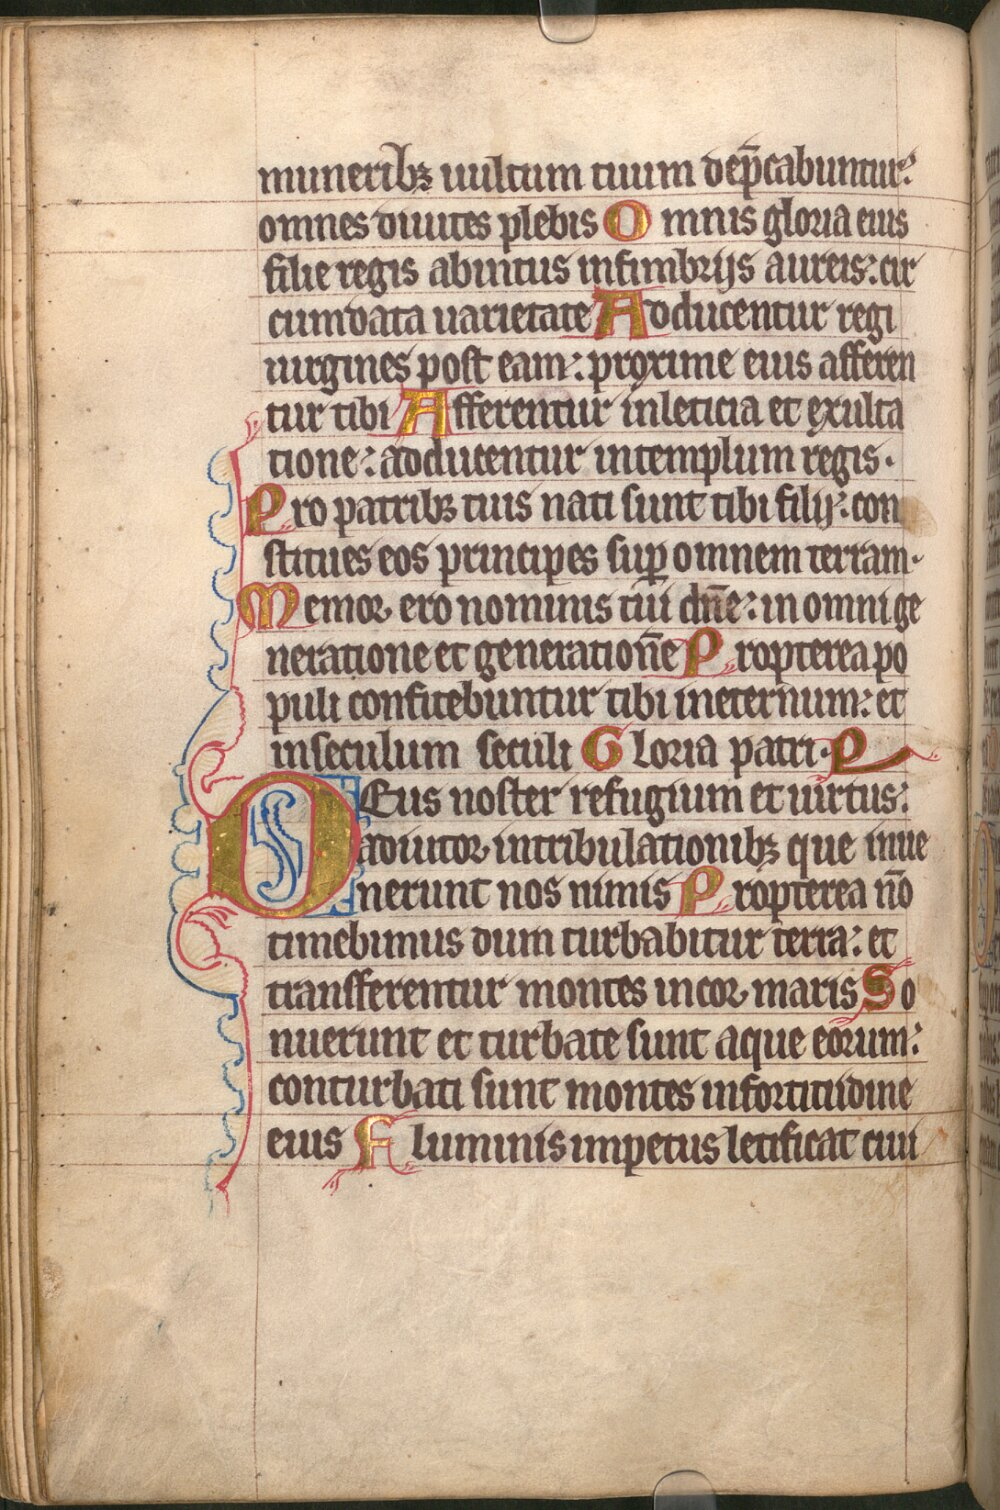 muneribꝫ uultum tuum dep̄cabuntur:
omnes diuites plebis Omnis gloria eius
filie regis abintus infimbrijs aureis: cir
cumdata uarietate Adducentur regi
uirgines post eam: proxime eius afferen
tur tibi Afferentur inleticia et exulta
tione: adducentur intemplum regis.
Pro patribꝫ tuis nati sunt tibi filij: con
stitues eos principes suꝑ omnem terram.
Memor ero nominis tui dn̄e: in omni ge
neratione et generatiōne Propterea po
puli confitebuntur tibi ineternum: et
inseculum seculi Gloria patri.
Deus noster refugium et uirtus:
adiutor intribulationibꝫ que inue
nerunt nos nimis Propterea nō
timebimus dum turbabitur terra: et
transferentur montes incor maris So
nuerunt et turbate sunt aque eorum:
conturbati sunt montes infortitudine
eius Fluminis impetus letificat ciui